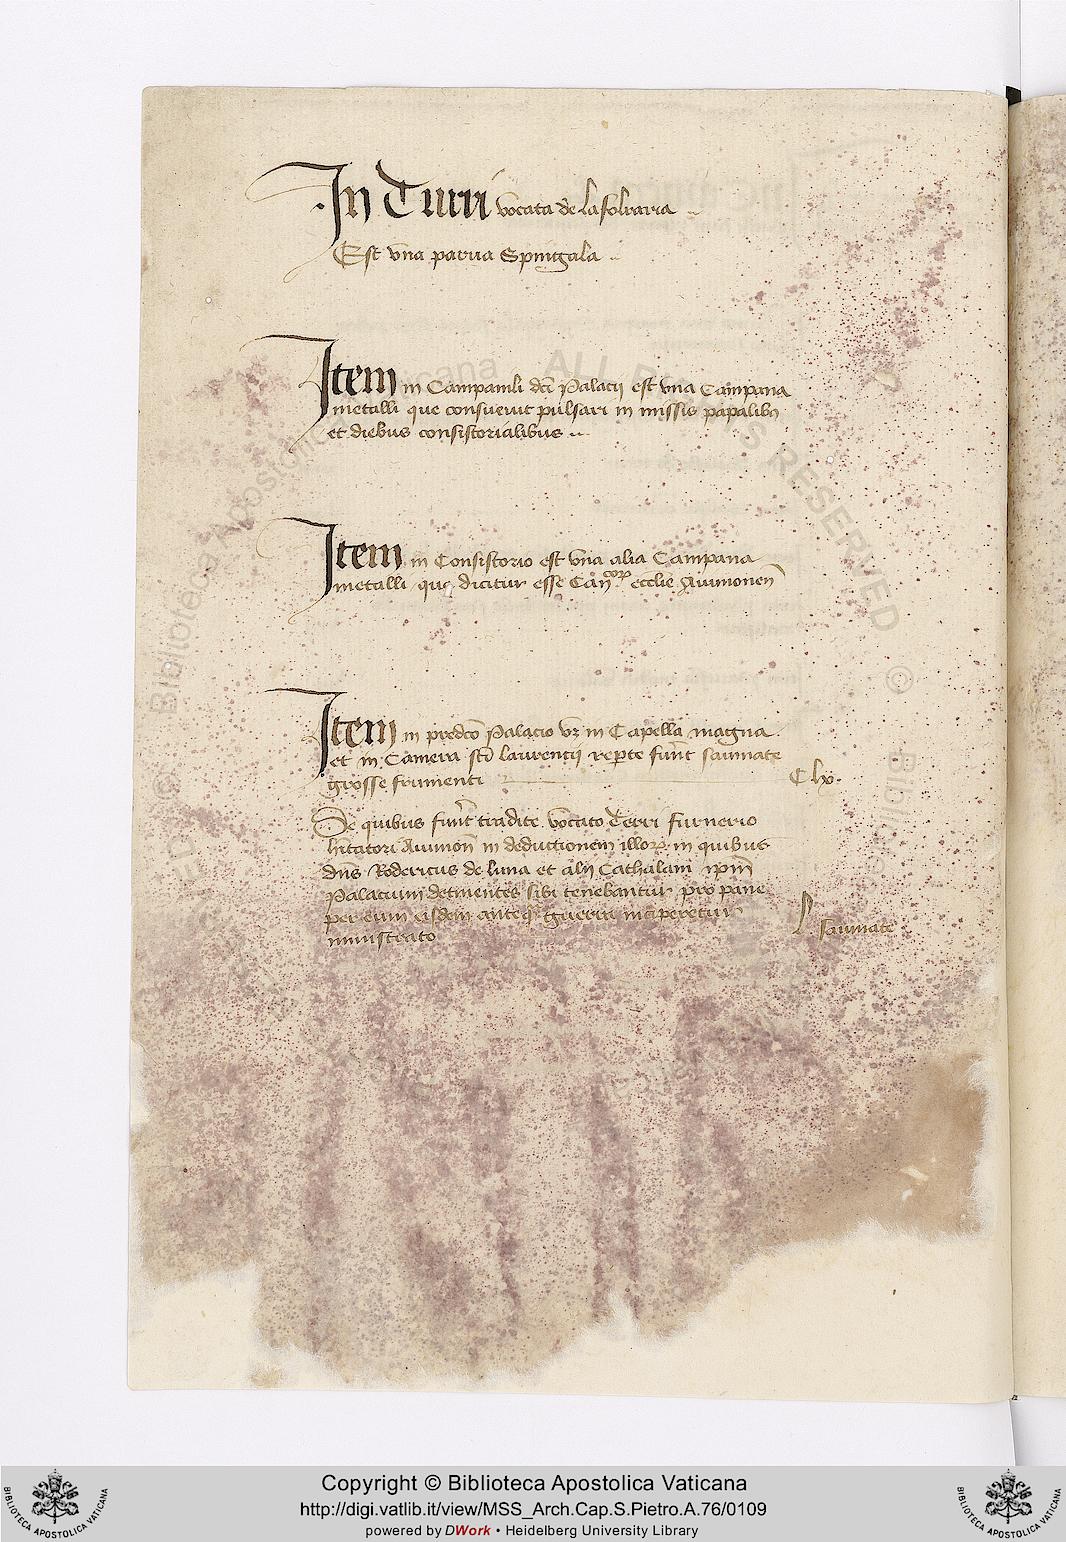 In Turri vocata de la folraria
Est vna parua Spingala
Item in Campanili dci Palacij est vna Campana
metalli que consueuit pulsari in missis papalibus
et diebus consistorialibus
Item in Consistorio est vna alia Campana
metalli que dicitur esse Can.corp ecclie Auinionen
Item in predco Palacio vz in Capella magna
et in Camera sti laurencij reperte funt saumate
grosse frumenti C lx.
De quibus funt tradite vocato Terri furnerio
hitatori Auinion in deductionem illorum in quibus
dns Rodericus de luna et alij Cathalani ipm
Palacium detinentes sibi tenebantur pro pane
per eum eisdem anteq guerra inciperetur
ministrato L saumate
© Biblioteca Apostolica Vaticana ALL RIGHTS RESERVED
Copyright © Biblioteca Apostolica Vaticana
http://digi.vatlib.it/view/MSS_Arch.Cap.S.Pietro.A.76/0109
powered by DWork • Heidelberg University Library
BIBLIOTECA APOSTOLICA VATICANA
BIBLIOTECA APOSTOLICA VATICANA